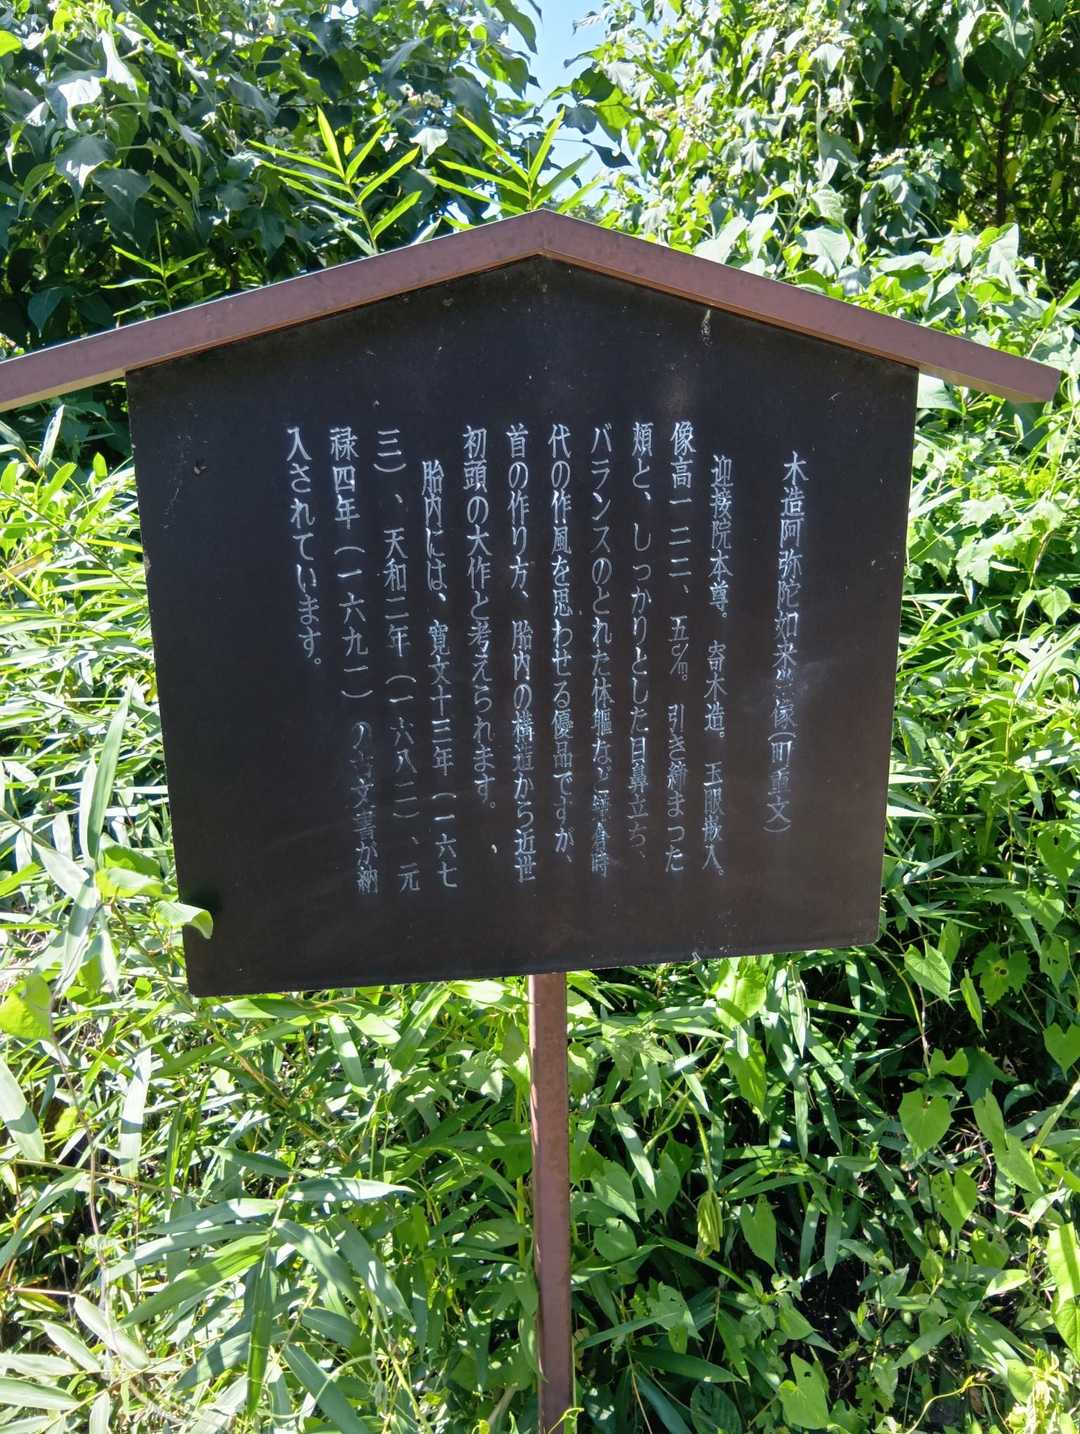 木造阿弥陀如来坐像(町重文)
迎接院本尊。寄木造。玉眼嵌入。
像高一二二、五㎝。引き締まった
頬と、しっかりとした目鼻立ち、
バランスのとれた体軀など鎌倉時
代の作風を思わせる優品ですが、
首の作り方、胎内の構造から近世
初頭の大作と考えられます。
胎内には、寛文十三年(一六七
三)、天和二年(一六八二)、元
禄四年(一六九一)の古文書が納
入されています。